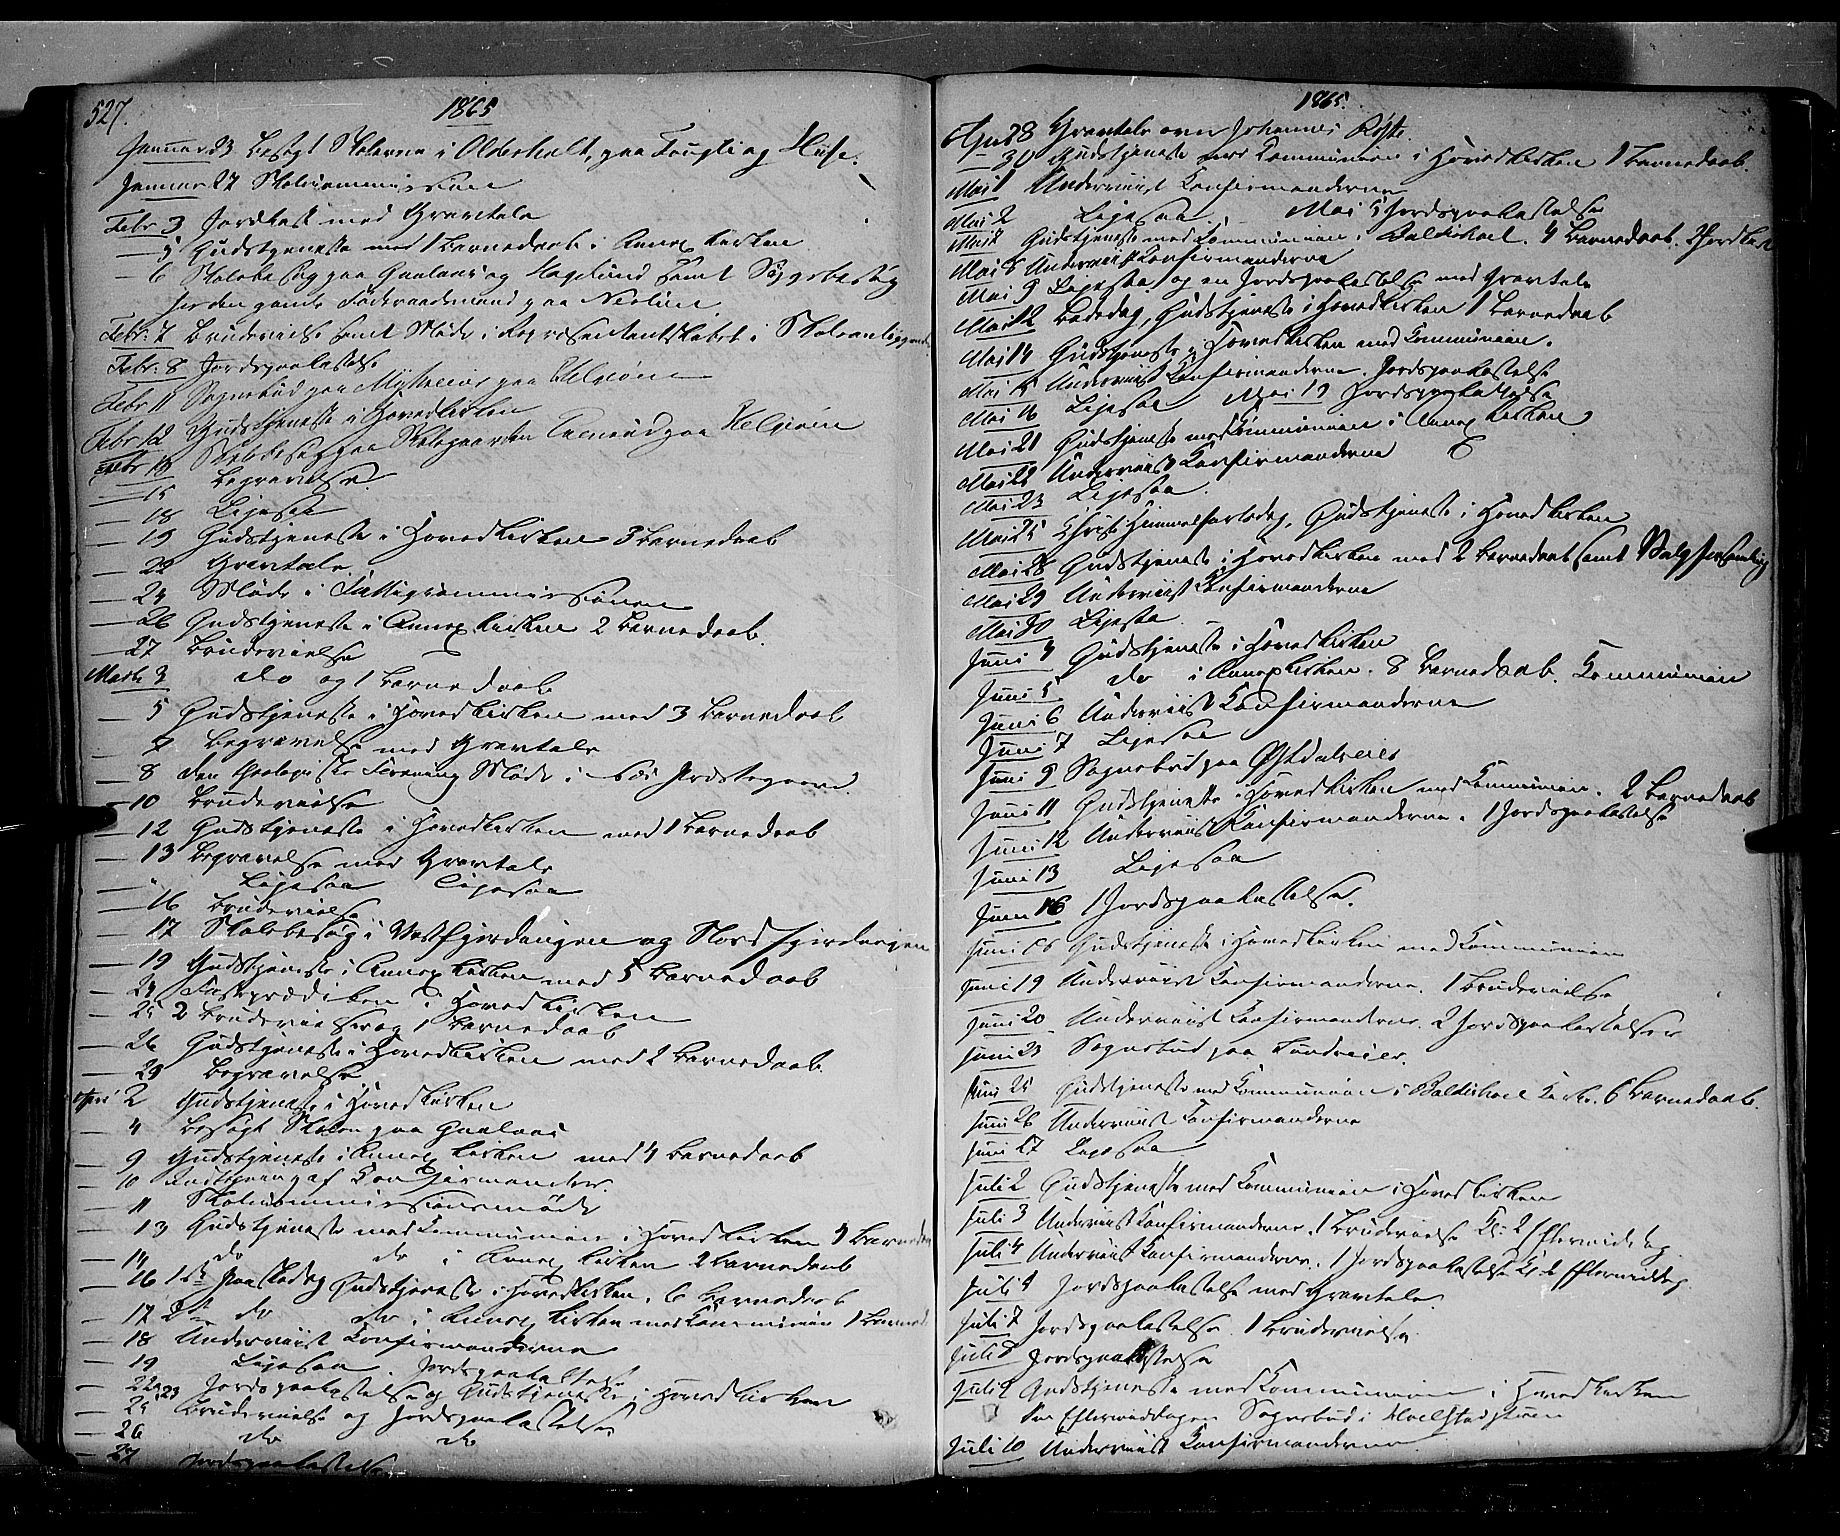 527.
1865
Januar 23 Besøgt Skolerne i Olderholt, paa Fougli og Huse.
Januar 27 Skolecommission
Febr 3 Jordfæst med Gravtale
— 5 Gudstjeneste med 1 Barnedaab i Annexkirken
— 6 Skolebesøg paa Gaalaas og Hagelund samt Sygebesøg
hos den gamle Føderaadsmand paa
Febr: 7 Brudevielse samt Møde i Repræsentantskabet i Skoleanliggende
Febr: 8 Jordspaakastelse
Febr 11 Sognebud paa Myhreeie paa Helgøen
Febr 12 Gudstjeneste i Hovedkirken
Febr 13 Skolebesøg paa Skolegaarden paa Helgøen
— 15 Begravelse.
— 18 Ligesaa
— 19 Gudstjeneste i Hovedkirken 3 Barnedaab
— 22 Gravtale
— 24 Møde i Fattigcommissionen
— 26 Gudstjeneste i Annexkirken 2 Barnedaab.
— 27 Brudevielse
Marts 3 do og 1 Barnedaab
— 5 Gudstjeneste i Hovedkirken med 3 Barnedaab
— 7 Begravelse med Gravtale
— 8 den theologiske Forening Møde i Præstegaard
— 10 Brudevielse
— 12 Gudstjeneste i Hovedkirken med 1 Barnedaab
— 13 Begravelse med Gravtale
— " Ligesaa Ligesaa
— 16 Brudevielse
— 17 Skolebesøg i Vestfjerdingen og Nordfjerdingen
— 19 Gudstjeneste i Annexkirken med 5 Barnedaab
— 24 Fasteprædiken i Hovedkirken
— 25 2 Brudevielser og 1 Barnedaab
— 26 Gudstjeneste i Hovedkirken med 2 Barnedaab.
— 29 Begravelse
April 2 Gudstjeneste i Hovedkirken
— 4 Besøgt Skolen paa Gaalaas
— 9 Gudstjeneste i Annexkirken med 4 Barnedaab
— 10 Indskrivning af Confirmander.
— 11 Skolecommissionsmøde
— 13 Gudstjeneste med Communion i Hovedkirken 4 Barned
— 14 do do i Annexkirken 2 Barnedaab
— 16 1ste Paaskedag Gudstjeneste i Hovedkirken. 6 Barnedaab
— 17 2den do do i Annexkirken med Communion 1 Barned
— 18 Underviist Confirmanderne
— 19 Ligesaa. Jordspaakastelse
— 22 Jordspaakastelse og 23 Gudstjeneste i Hovedkirken
— 25 Brudevielse og Jordspaakastelse
— 26 do do
— 27 Jordspaakastelse
1865.
Apr 28 Gravtale over Johannes Røste
— 30 Gudstjeneste med Communion i Hovedkirken 1 Barnedaab.
Mai 1 Underviist Confirmanderne
Mai 2 Ligesaa. Mai 5 Jordspaakastelse
Mai 7 Gudstjeneste med Communion i Baldishoel. 4 Barnedaab. 2 Jordkast
Mai 8 Underviist Confirmanderne
Mai 9 Ligesaa og en Jordspaakastelse med Gravtale
Mai 12 Bededag, Gudstjeneste i Hovedkirken 1 Barnedaab
Mai 14 Gudstjeneste i Hovedkirken med Communion.
Mai 15 Underviist Confirmanderne. Jordspaakastelse
Mai 16 Ligesaa Mai 19 Jordspaakastelse
Mai 21 Gudstjeneste med Communion i Annexkirken
Mai 22 Underviist Confirmanderne
Mai 23 Ligesaa.
Mai 25 Christi Himmelfartsdag, Gudstjeneste i Hovedkirken
Mai 28 Gudstjeneste i Hovedkirken med 2 Barnedaab samt Valgforsamling
Mai 29 Underviist Confirmanderne
Mai 30 Ligesaa.
Juni 4 Gudstjeneste i Hovedkirken
Juni 5 do i Annexkirken. 8 Barnedaab. Communion
Juni 6 Underviist Confirmanderne
Juni 7 Ligesaa
Juni 9 Sognebud paa
Juni 11 Gudstjeneste i Hovedkirken med Communion. 2 Barnedaab
Juni 12 Underviist Confirmanderne. 1 Jordspaakastelse
Juni 13 Ligesaa
Juni 16 1 Jordspaakastelse.
Juni 18 Gudstjeneste i Hovedkirken med Communion
Juni 19 Underviist Confirmanderne. 1 Brudevielse
Juni 20 Underviist Confirmanderne. 2 Jordspaakastelser
Juni 23 Sognebud paa
Juni 25 Gudstjeneste med Communion i Baldishoel Kirke. 6 Barnedaab.
Juni 26 Underviist Confirmanderne
Juni 27 Ligesaa
Juli 2 Gudstjeneste med Communion i Hovedkirken
Juli 3 Underviist Confirmanderne. 1 Brudevielse Kl: 2 Eftermiddag
Juli 4 Underviist Confirmanderne. 1 Jordspaakastelse Kl: Eftermiddag.
Juli 4 Jordspaakastelse med Gravtale
Juli 7 Jordspaakastelse. 1 Brudevielse.
Juli 8 Jordspaakastelse
Juli 9 Gudstjeneste med Communion i Hovedkirken
Om Eftermiddagen Sognebud i
Juli 10 Underviist Confirmanderne